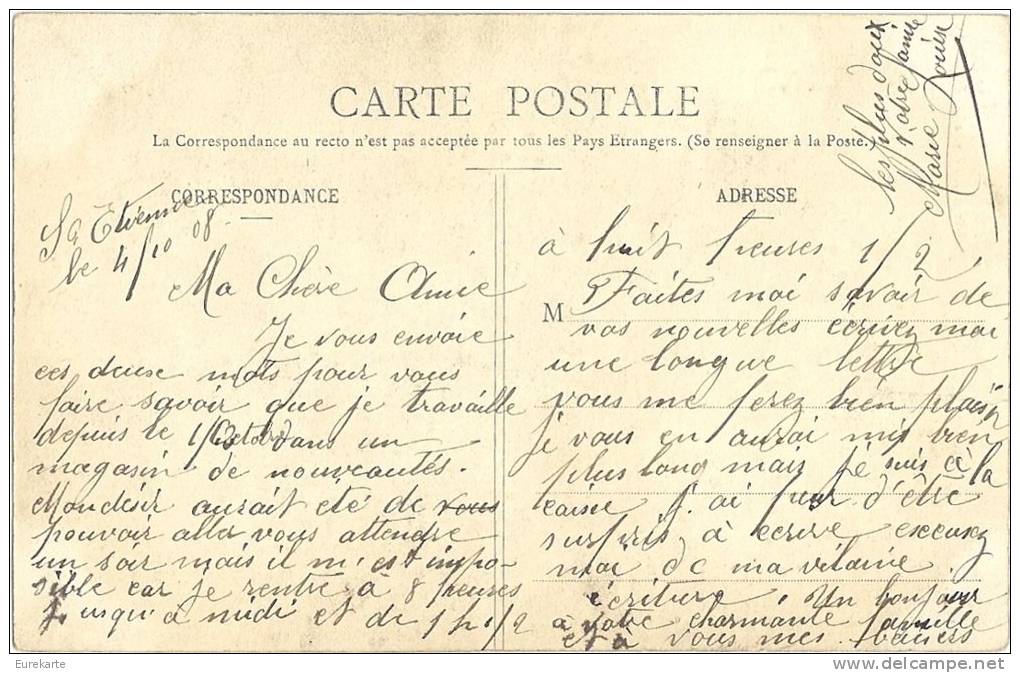 CARTE POSTALE
La Correspondance au recto n'est pas acceptée par tous les Pays Etrangers. (Se renseigner à la Poste.)
CORRESPONDANCE
St Etienne
le 4/10 08.
Ma Chère Amie
Je vous envoie
ces deuse mots pour vous
faire savoir que je travaille
depuis le 1 Octobre dans un
magasin de nouveautés.
Mondésir aurait été de vous
pouvoir aller vous attendre
un soir mais il m'est impo-
sible car je rentre à 8 heures
jusqu'à midi et de 1 h 1/2
ADRESSE
à huit heures 1/2
M
Faites moi savoir de
vos nouvelles écrivez moi
une longue lettre
vous me ferez bien plaisir
je vous en aurai mis bien
plus long mais je suis à la
caisse j'ai peur d'être
surpris à ecrire excusez
moi de ma vilaine
écriture. Un bonjour
à votre charmante famille
et à vous mes baisers
les plus doux
Votre amie
Marie
Eurekarte
delcampe.net